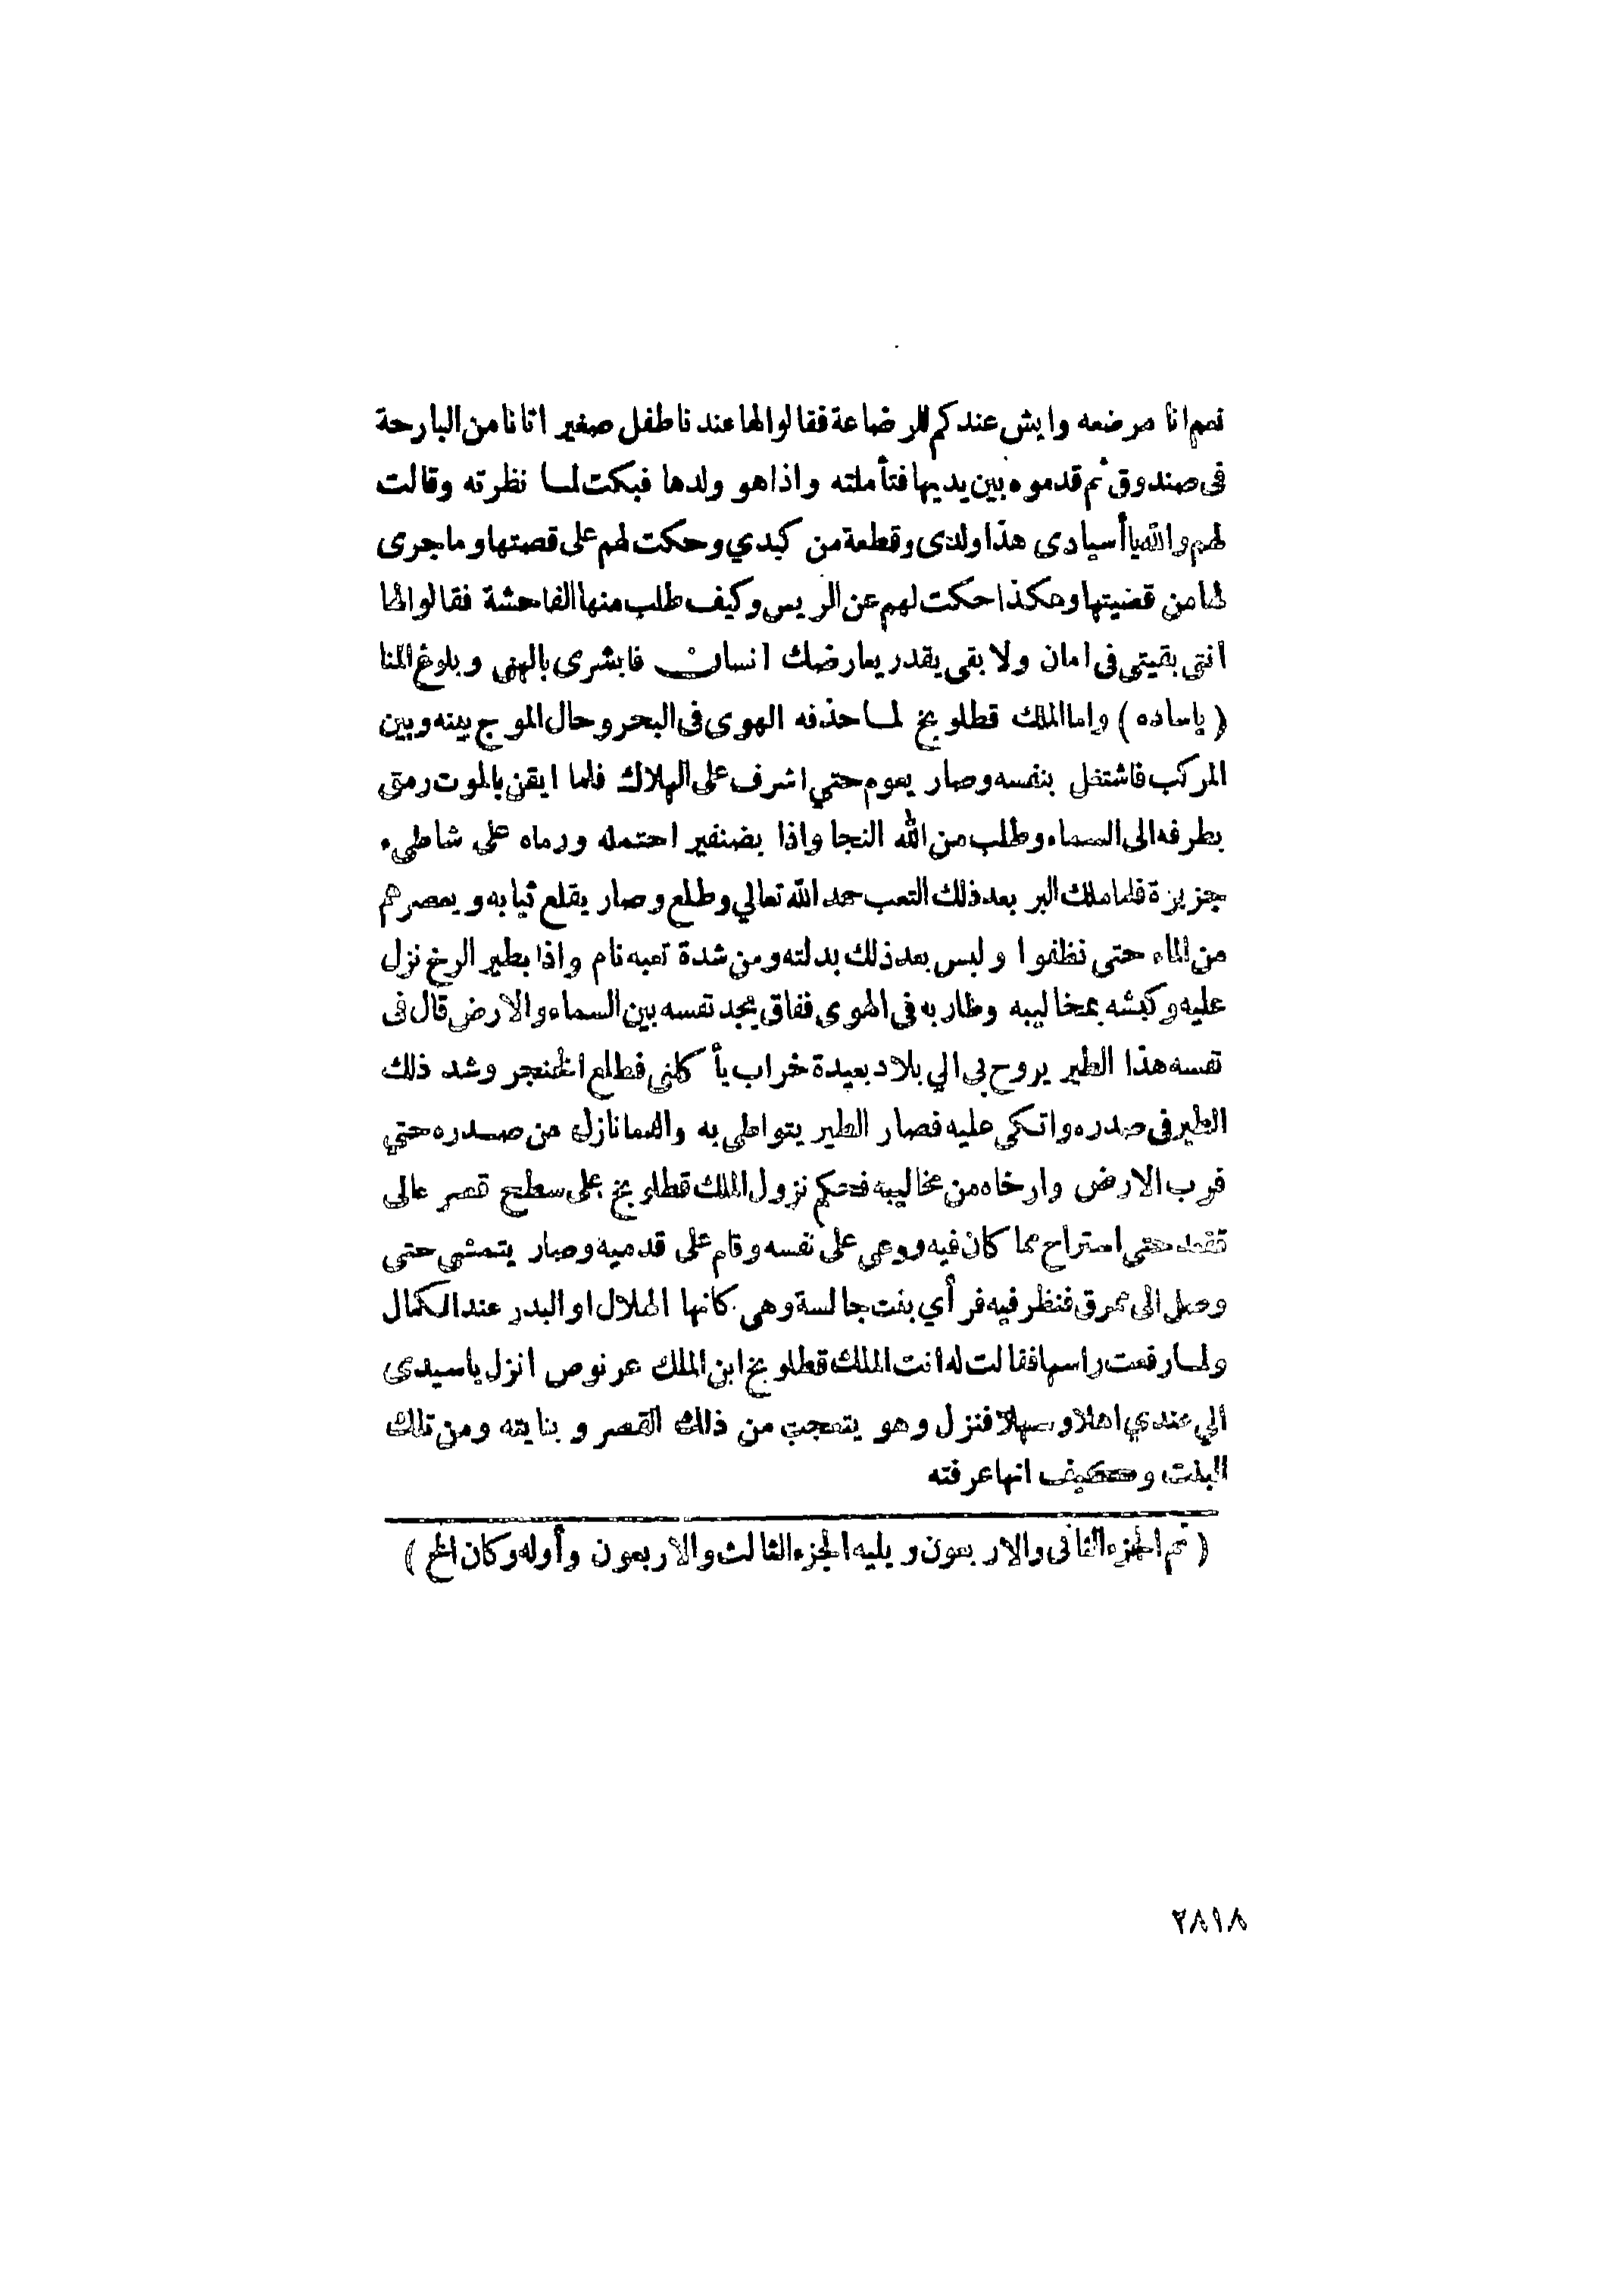 نعم انا مرضعه وايش عندكم للرضاعة فقالوا لها عندنا طفل صغير اتانا من البارحة
فى صندوق ثم قدموه بين يديها فتأملته واذا هو ولدها فبكت لما نظرته وقالت
لهم والله يا أسيادى هذا ولدى وقطعة من كبدي وحكت لهم على قصتها وما جرى
لها من قضيتها وهكذا حكت لهم عن الريس وكيف طلب منها الفاحشة فقالوا لها
انتى بقيتى فى امان ولا بقى يقدر يعارضك انسان فابشرى بالهنى وبلوغ المنا
( ياساده ) واما الملك قطلوبخ لما حذفه الهوى فى البحر وحال الموج بينه وبين
المركب فاشتغل بنفسه وصار يعوم حتي اشرف على الهلاك فلما ايقن بالموت رمق
بطرفه الى السماء وطلب من الله النجا واذا بضنفير احتمله ورماه على شاطىء
جزيزة فلما ملك البر بعد ذلك التعب حمد الله تعالي وطلع وصار يقلع ثيابه ويعصرهم
من الماء حتى نظفوا ولبس بعد ذلك بدلته ومن شدة تعبه نام واذا بطير الرخ نزل
عليه وكبشه بمخاليبه وطار به فى الهوى ففاق يجد نفسه بين السماء والارض قال فى
نفسه هذا الطير يروح بى الي بلاد بعيدة خراب يأكلنى فطلع الخنجر وشد ذلك
الطير فى صدره واتكي عليه فصار الطير يتواطى به والدما نازل من صدره حتي
قرب الارض وارخاه من مخاليبه فحكم نزول الملك قطلوبخ على سطح قصر عالى
تقعد حتي استراح مما كان فيه ووعي على نفسه وقام على قدميه وصار يتمشى حتى
وصل الى ممرق فنظر فيه فرأي بنت جالسة وهى كانها الهلال او البدر عند الكمال
ولما رفعت راسها فقالت له انت الملك قطلوبخ ابن الملك عرنوص انزل ياسيدى
الي عندي اهلا وسهلا فنزل وهو يتعجب من ذلك القصر وبنايته ومن تلك
البنت وكيف انها عرفته
( تم الجزء الثانى والاربعون ويليه الجزء الثالث والاربعون وأوله وكان الخ )
٢٨١٨